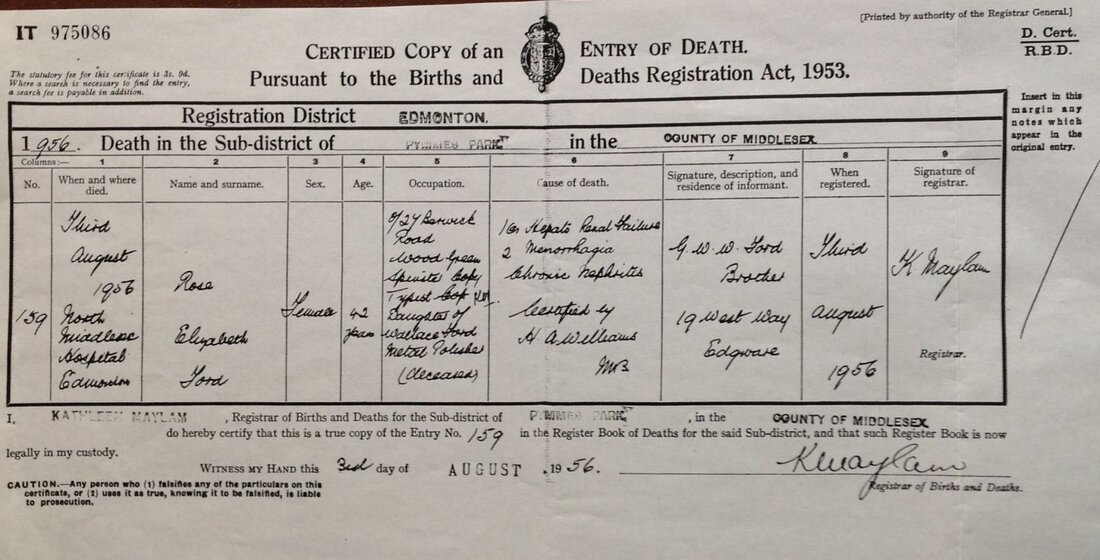 IT 975086
[Printed by authority of the Registrar General.]
D. Cert.
R.B.D.
CERTIFIED COPY OF AN ENTRY OF DEATH.
Pursuant to the Births and Deaths Registration Act, 1953.
The statutory fee for this certificate is 3s. 9d.
Where a search is necessary to find the entry,
a search fee is payable in addition.
Insert in this
margin any
notes which
appear in the
original entry.
Registration District EDMONTON.
1956. Death in the Sub-district of PYMMES PARK in the COUNTY OF MIDDLESEX
Columns:— 1 2 3 4 5 6 7 8 9
No. When and where died. Name and surname. Sex. Age. Occupation. Cause of death. Signature, description, and residence of informant. When registered. Signature of registrar.
159
Third
August
1956
North
Middlesex
Hospital
Edmonton
Rose
Elizabeth
Ford
Female
42
years
of 27 Berwick
Road
Wood Green
Spinster Copy
Typist
Daughter of
Wallace Ford
Metal Polisher
(deceased)
Hepato Renal Failure
2 Menorrhagia
Chronic Nephritis
Certified by
H A Williams
MB
G. W. W. Ford
Brother
19 West Way
Edgware
Third
August
1956
K Maylam
Registrar.
I, KATHLEEN MAYLAM, Registrar of Births and Deaths for the Sub-district of PYMMES PARK, in the COUNTY OF MIDDLESEX
do hereby certify that this is a true copy of the Entry No. 159 in the Register Book of Deaths for the said Sub-district, and that such Register Book is now
legally in my custody.
WITNESS MY HAND this 3rd day of AUGUST, 1956.
K Maylam
Registrar of Births and Deaths.
CAUTION.—Any person who (1) falsifies any of the particulars on this
certificate, or (2) uses it as true, knowing it to be falsified, is liable
to prosecution.